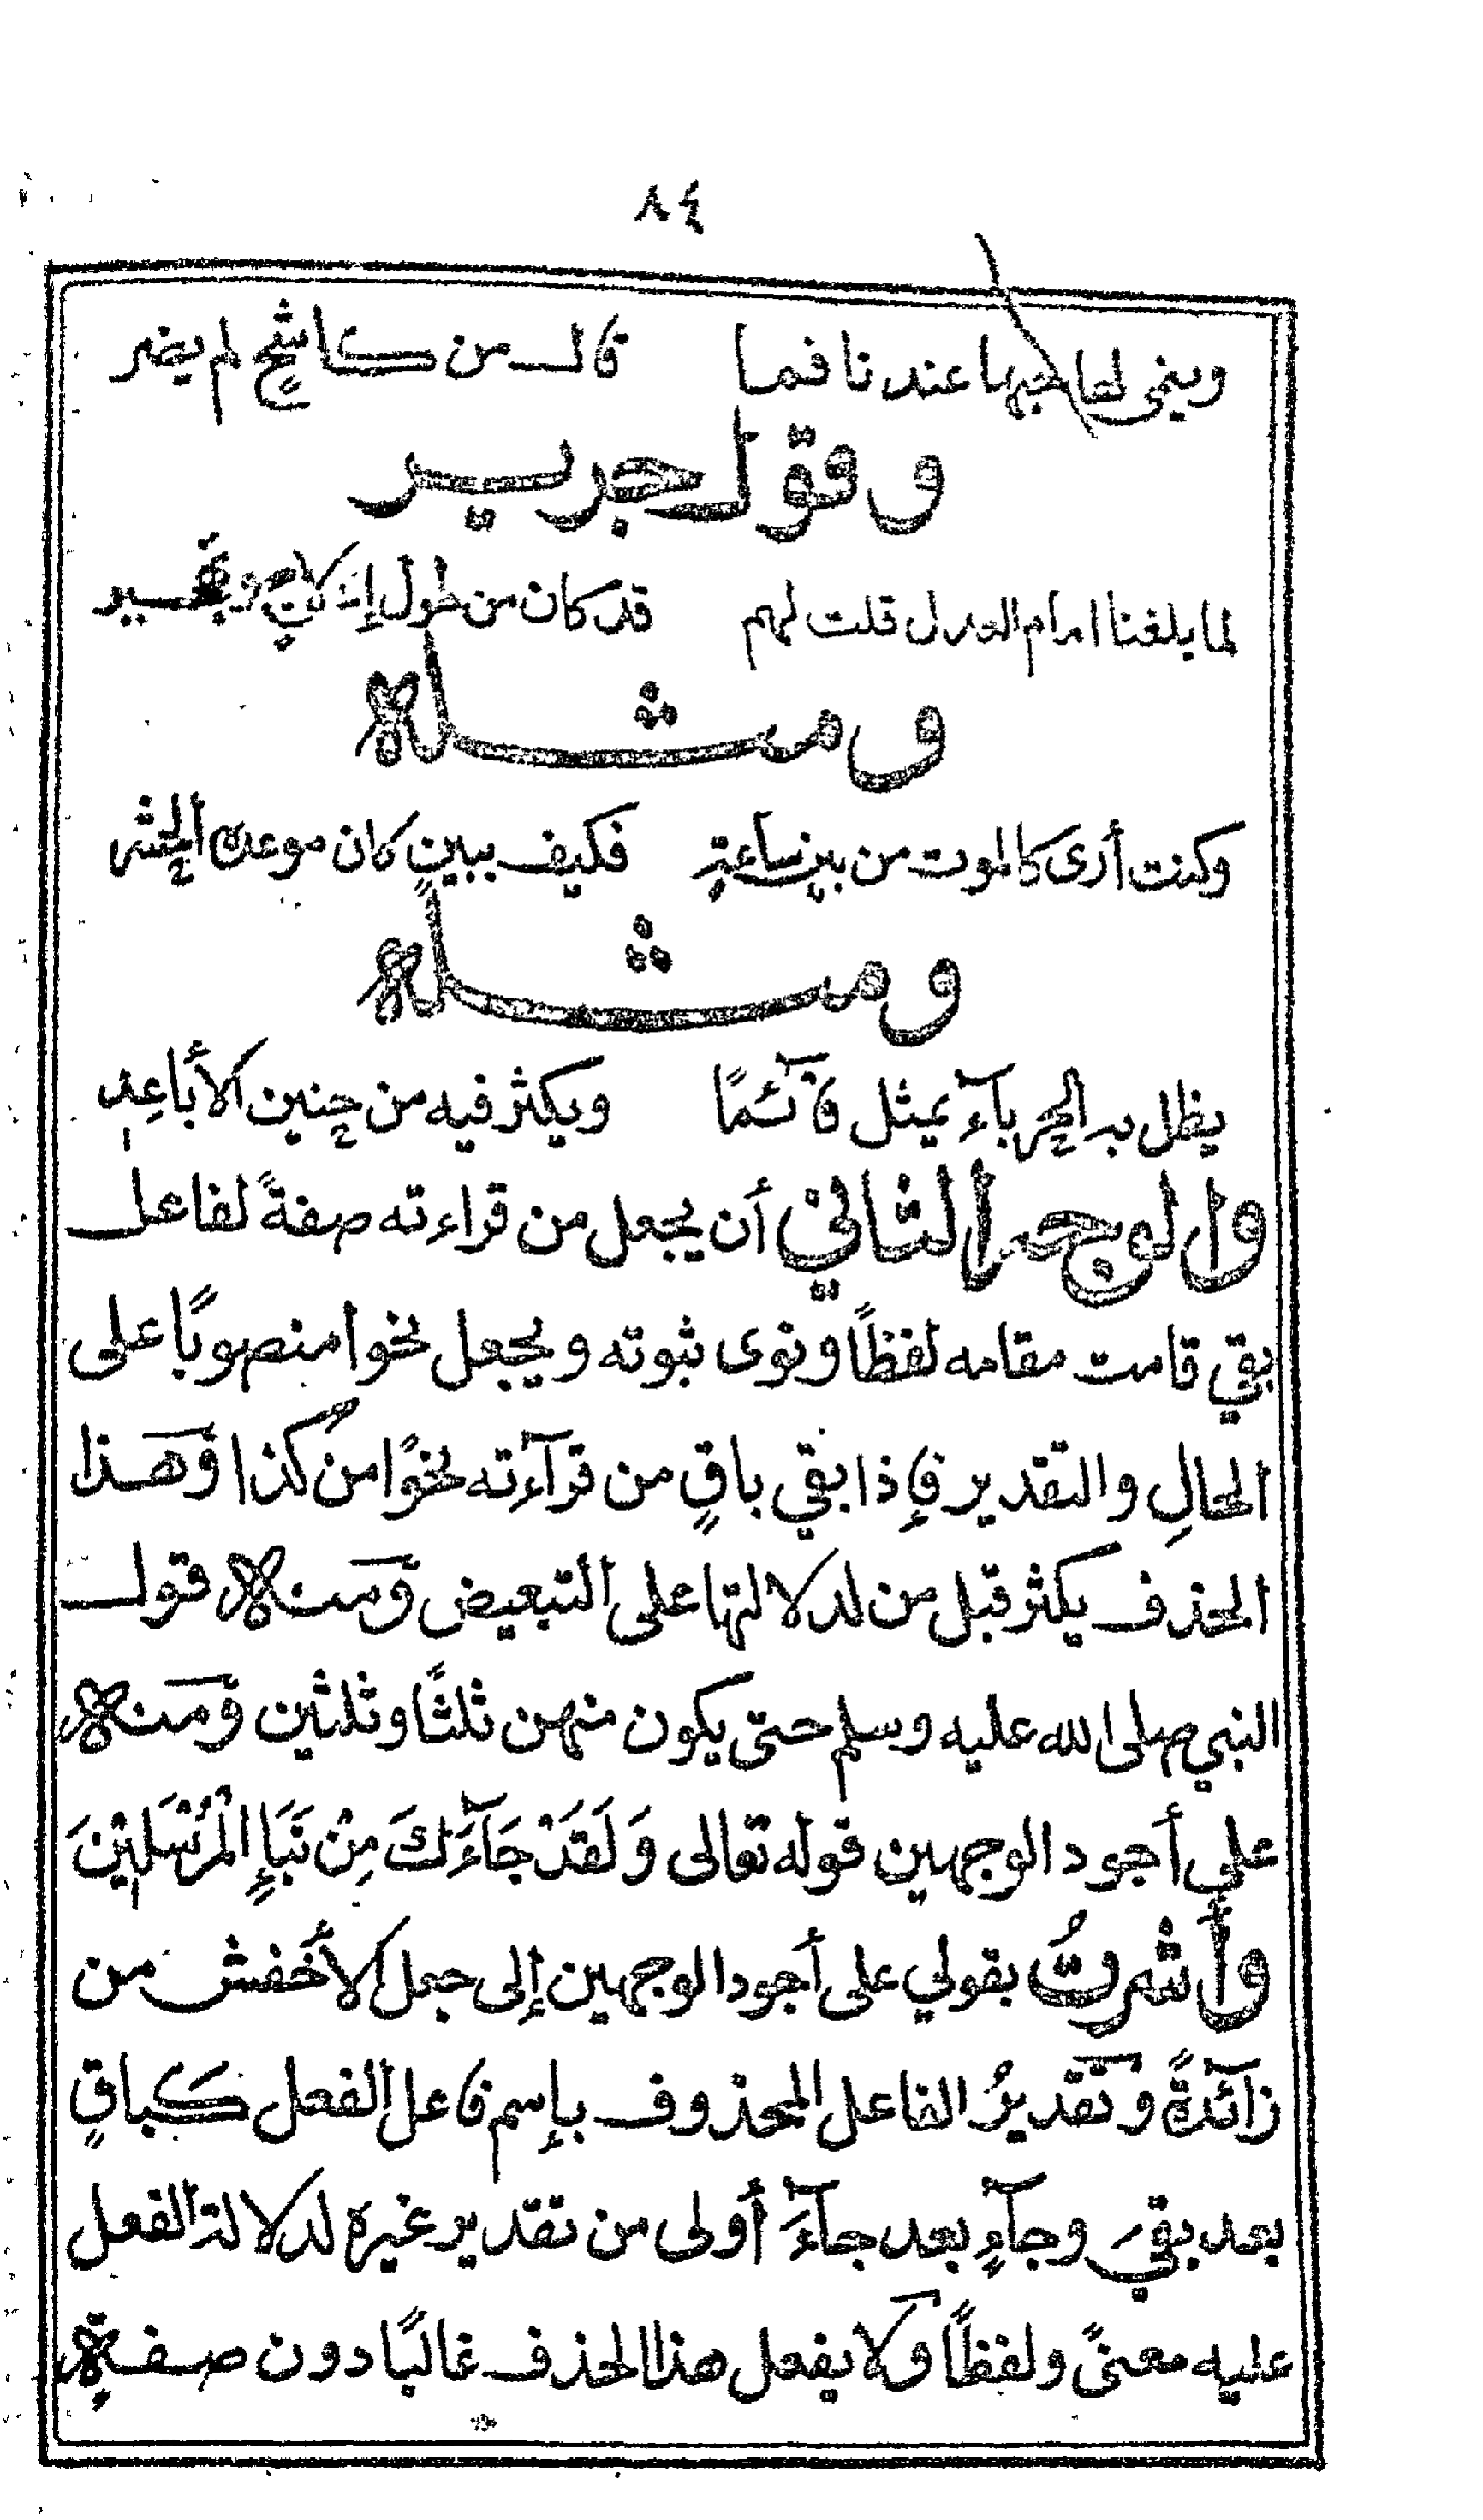 ٨٤
وينمى لها حبها عندنا فما قال من كاشح لم يضر
وقول جرير
لما بلغنا امام العدل قلت لهم قد كان من طول إدلاج وتهجير
ومثله
وكنت أرى كالموت من بين ساعةٍ فكيف ببينٍ كان موعده الحشر
ومثله
يظل به الحرباءُ يمثل قائمًا ويكثر فيه من حنين الأباعِد
والوجه الثاني أن يجعل من قراءته صفةً لفاعل
بقي قامت مقامه لفظًا ونوى ثبوته ويجعل نحوا منصوبًا على
الحالِ والتقدير فإذا بقي باقٍ من قرآءته نحوًا من كذا وهذا
الحذف يكثر قبل من لدلالتها على التبعيض ومنه قول
النبي صلى الله عليه وسلم حتى يكون منهن ثلثًا وثلثين ومنه
على أجود الوجهين قوله تعالى وَلَقَدْ جَآءَكَ مِنْ نَبَإِ الْمُرْسَلِيْنَ
وأشرتُ بقولي على أجود الوجهين إلى جعل الأخفش من
زآئدةً وتقديرُ الفاعل المحذوف بإسم فاعل الفعل كباقٍ
بعد بقيَ وجآءٍ بعد جآءَ أولى من تقدير غيره لدلالة الفعل
عليه معنىً ولفظًا ولا يفعل هذا الحذف غالبًا دون صفةٍ